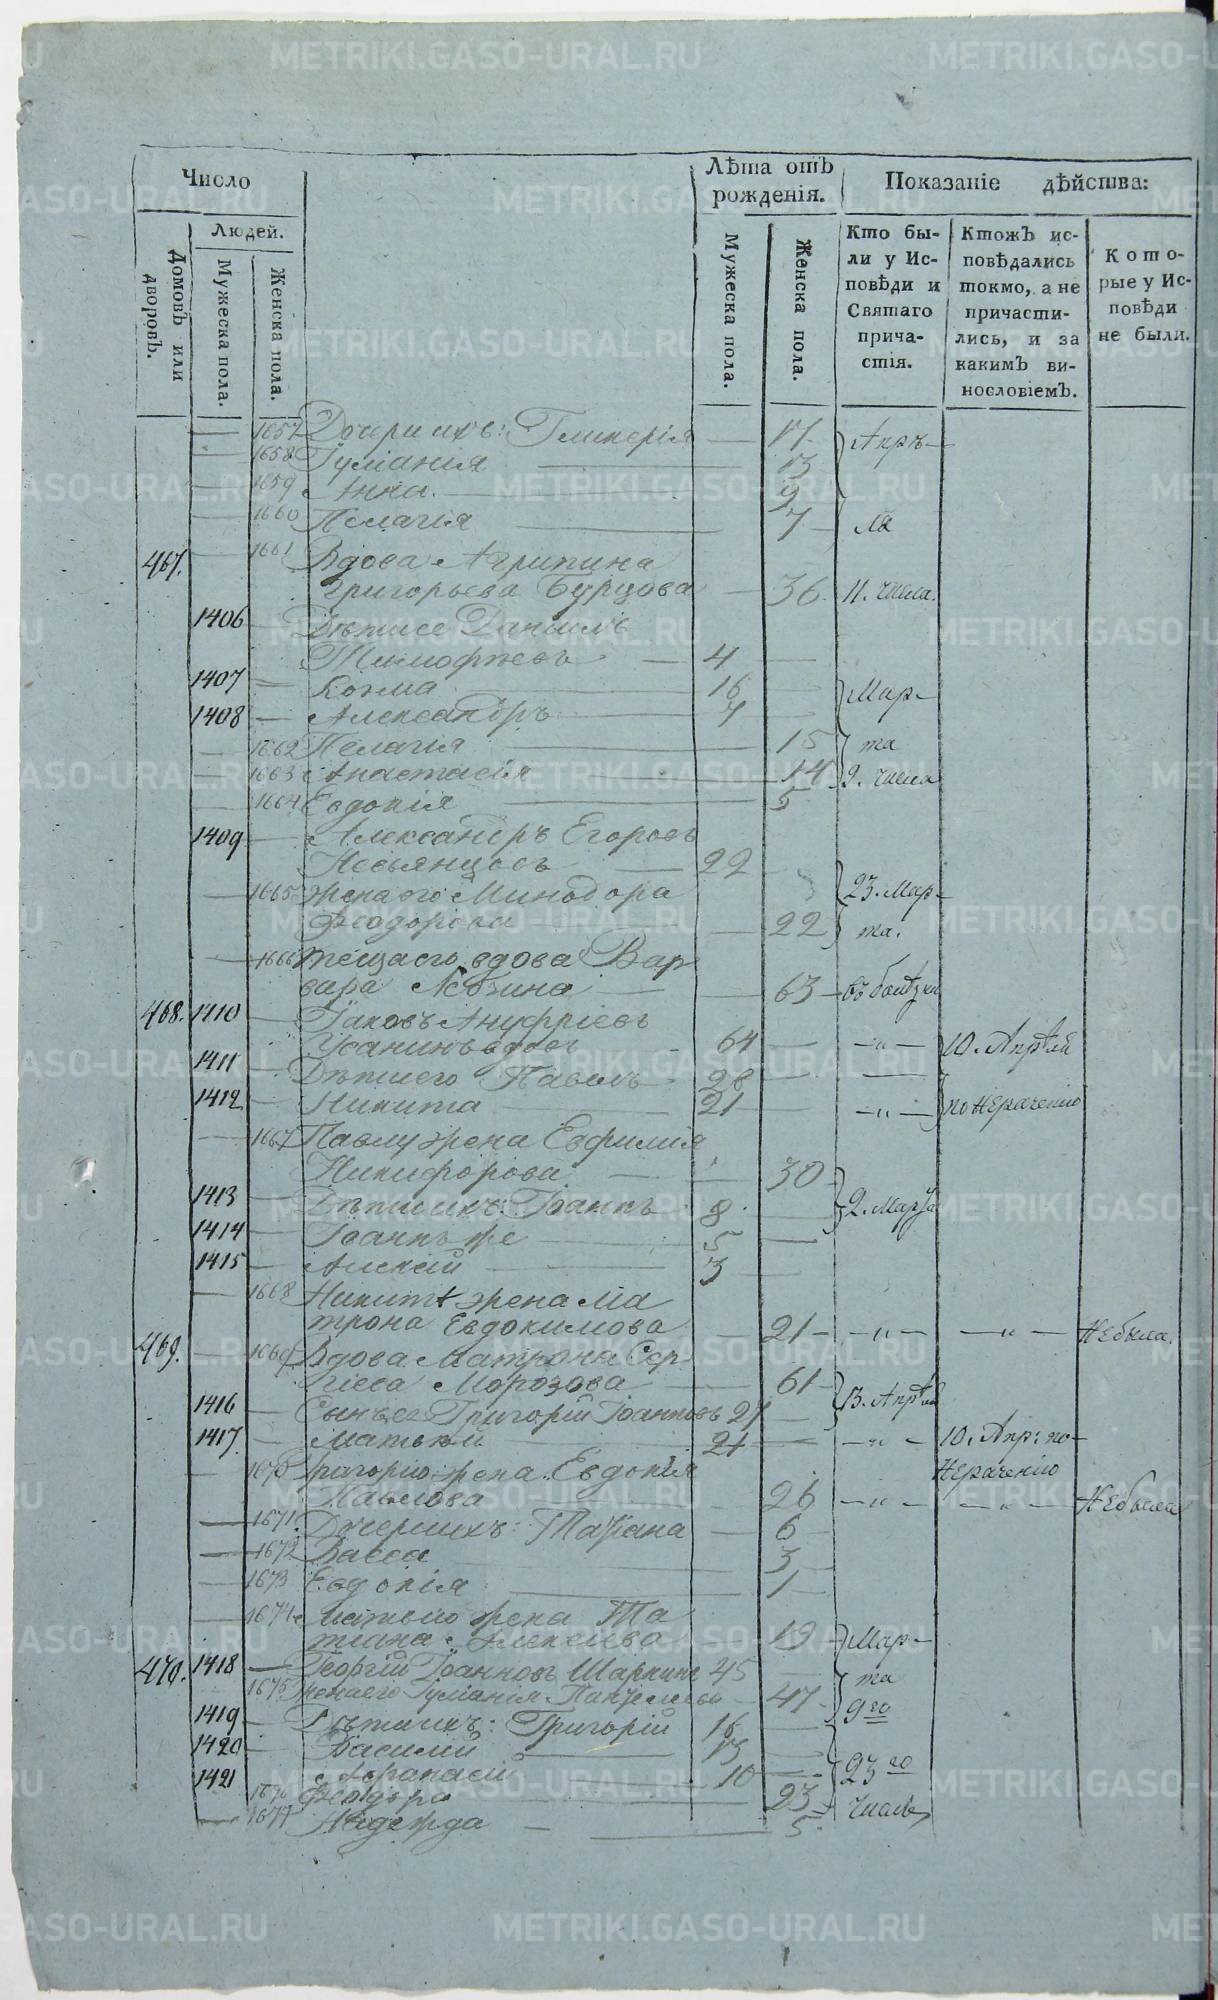 Число
Лѣта отъ рожденія.
Показаніе дѣйства:
Людей.
Домовъ или дворовъ.
Мужеска пола.
Женска пола.
Мужеска пола.
Женска пола.
Кто бы-
ли у Ис-
повѣди и
Святаго
прича-
стія.
Ктожъ ис-
повѣдались
токмо, а не
причасти-
лись, и за
какимъ ви-
нословіемъ.
Кото-
рые у Ис-
повѣди
не были.
1657 Дочери ихъ: Гликерія — 17 Апрѣ-
1658 Іуліанія — 13
1659 Анна — 9
1660 Пелагія — 7 ля
467. 1661 Вдова Агрипина
Григорьева Бурцова — 36 11. числа.
1406 Дѣти ее Даніилъ
Тимофѣевъ — 4
1407 — Козма — 16 Мар-
1408 — Александръ — 7
1662 Пелагія — 15 та
1663 Анастасія — 14 9. числа
1664 Евдокія — 5
1409 — Александръ Егоровъ
Невьянцовъ — 22
1665 Жена его Минодора 23. Мар-
Феодорова — 22 та.
1666 Теща его вдова Вар
вара — 63
468. 1410 — Іаковъ Ануфріевъ
Усанинъ вдовъ — 64 — „ — 10. Апрѣля
1411 — Дѣти его Павелъ — 28
1412 — Никита — 21 — „ — по нераченію
1667 Павлу жена Евфимія
Никифорова — 30
1413 — Дѣти ихъ: Іоаннъ — 8 2. Марта
1414 — Іоаннъ же — 5
1415 — Алексій — 3
1668 Никитѣ жена Ма
трона Евдокимова — 21 — „ — — „ — Не была.
469. 1669 Вдова Матрона Сер
гіева Морозова — 61 13. Апрѣля
1416 — Сынъ ее Григорій Іоанновъ 27
1417. — Матвѣй — 21 — „ — 10. Апр: по
1670 Григорію жена Евдокія нераченію
Павлова — 26 — „ — — „ — Не была
1671 Дочери ихъ: Татіана — 6
1672 Васса — 3
1673 Евдокія — 1
1674 Матвѣю жена Та
тіана Алексіева — 19 Мар-
470. 1418 — Георгій Іоанновъ Шаркинъ 45 та
1675 Жена его Іуліанія — 47 9го
1419 — Дѣти ихъ: Григорій 16
1420 — Василій 13
1421 Афанасій — 10 23го
1676 Феодора — 23
1677 Надежда — 5. числъ
METRIKI.GASO-URAL.RU